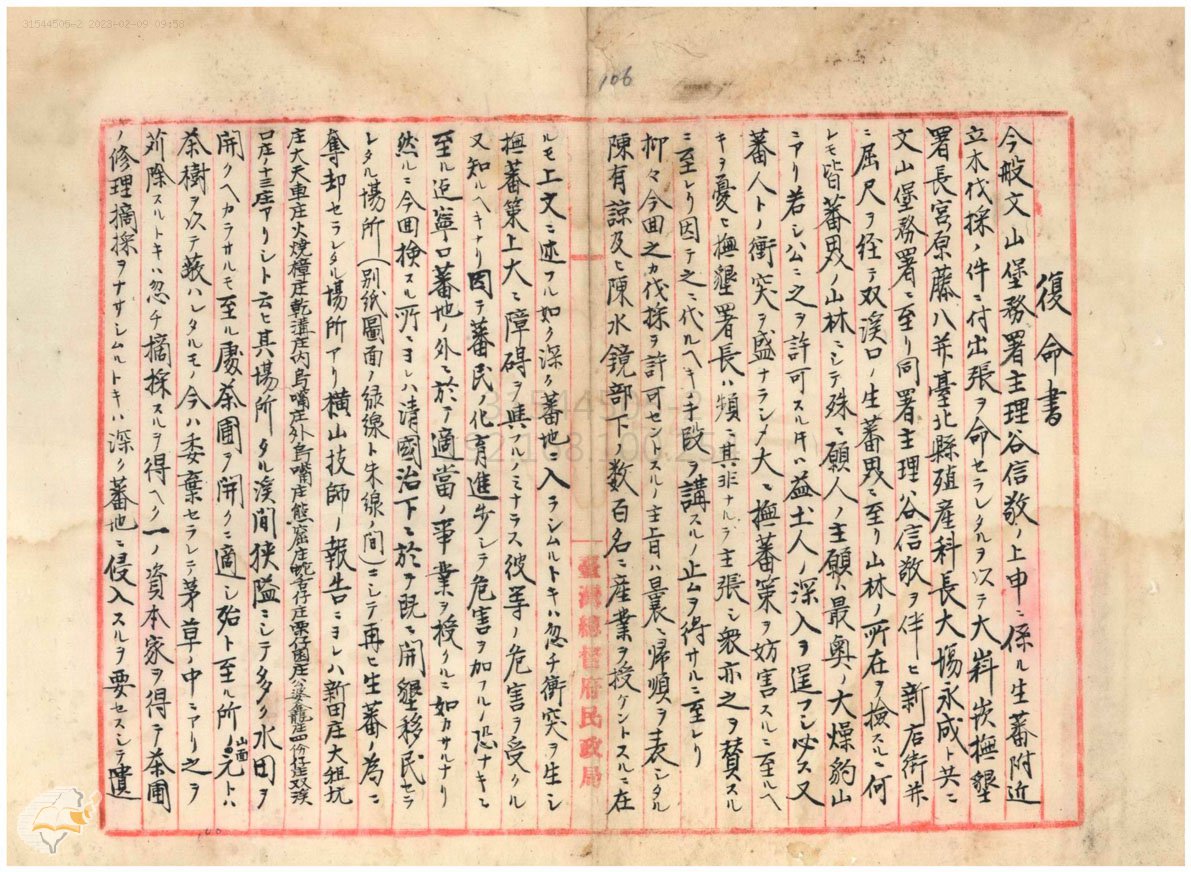 31544506-2 2023-02-09 09:58
106
復命書
今般文山堡務署主理谷信敬ノ上申ニ係ル生蕃附近
立木伐採ノ件ニ付出張ヲ命セラレタルヲ以テ大嵙崁撫墾
署長宮原藤八并臺北縣殖産科長大場永成ト共ニ
文山堡務署ニ至リ同署主理谷信敬ヲ伴ヒ新店街并
ニ屈尺ヲ経テ双溪口ノ生蕃界ニ至リ山林ノ所在ヲ検スルニ何
レモ皆蕃界ノ山林ニシテ殊ニ願人ノ主願ハ最奥ノ大燥豹山
ニアリ若シ公ニ之ヲ許可スル片ハ益土人ノ深入ヲ逞フシ必ス又
蕃人トノ衝突ヲ盛ナラシメ大ニ撫蕃策ヲ妨害スルニ至ルヘ
キヲ憂ヒ撫墾署長ハ頻ニ其非ナルヲ主張シ衆亦之ヲ賛スル
ニ至レリ因テ之ニ代ルヘキ手段ヲ講スルノ止ムヲ得サルニ至レリ
抑々今回之カ伐採ヲ許可セントスルノ主旨ハ曩ニ帰順ヲ表シタル
陳有諒及ヒ陳水鏡部下ノ数百名ニ産業ヲ授ケントスルニ在
臺灣總督府民政局
ルモ上文ニ述フル如ク深ク蕃地ニ入ラシムルトキハ忽チ衝突ヲ生シ
撫蕃策上大ニ障碍ヲ與フルノミナラス彼等ノ危害ヲ受クル
又知ルヘキナリ因テ蕃民ノ化育進歩シテ危害ヲ加フルノ恐ナキニ
至ル迄寧ロ蕃地ノ外ニ於テ適當ノ事業ヲ授クルニ如カサルナリ
然ルニ今回検スル所ニヨレハ清國治下ニ於テ既ニ開墾移民セラ
レタル場所(別紙圖面ノ緑線ト朱線ノ間)ニシテ再ヒ生蕃ノ為ニ
奪却セラレタル場所アリ横山技師ノ報告ニヨレハ新田庄大粗坑
庄大天車庄火燒樟庄乾溝庄内烏嘴庄外烏嘴庄熊窟庄蛇舌仔庄栗仔園庄公婆龍庄四份仔庄双溪
口庄ノ十三庄アリシト云ヒ其場所タル溪間狭隘ニシテ多ク水田ヲ
開クヘカラサルモ至ル處茶圃ヲ開クニ適シ殆ト至ル所ノ山面元トハ
茶樹ヲ以テ蔽ハレタルモノ今ハ委棄セラレテ茅草ノ中ニアリ之ヲ
苅除スルトキハ忽チ摘採スルヲ得ヘク一ノ資本家ヲ得テ茶圃
ノ修理摘採ヲナサシムルトキハ深ク蕃地ニ侵入スルヲ要セスシテ遺